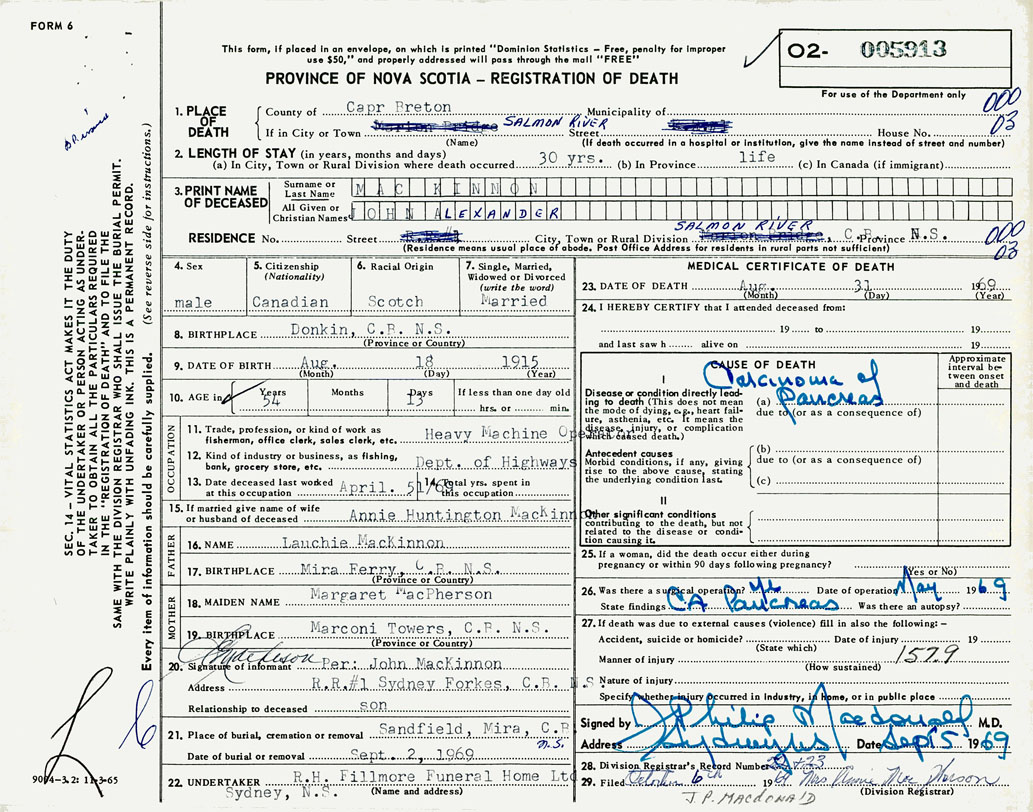 FORM 6
This form, if placed in an envelope, on which is printed "Dominion Statistics – Free, penalty for improper
use $50," and properly addressed will pass through the mail "FREE"
PROVINCE OF NOVA SCOTIA – REGISTRATION OF DEATH
O2- 005913
For use of the Department only
000
03
1. PLACE OF DEATH
County of Capr Breton Municipality of
If in City or Town SALMON RIVER Street House No.
(Name) (If death occurred in a hospital or institution, give the name instead of street and number)
2. LENGTH OF STAY (in years, months and days)
(a) In City, Town or Rural Division where death occurred 30 yrs. (b) In Province life (c) In Canada (if immigrant)
3. PRINT NAME OF DECEASED
Surname or Last Name MAC KINNON
All Given or Christian Names JOHN ALEXANDER
SALMON RIVER
RESIDENCE No. Street R.R.#1 City, Town or Rural Division , C.B. Province N.S.
(Residence means usual place of abode. Post Office Address for residents in rural parts not sufficient)
000
03
4. Sex
male
5. Citizenship
(Nationality)
Canadian
6. Racial Origin
Scotch
7. Single, Married,
Widowed or Divorced
(write the word)
Married
8. BIRTHPLACE Donkin, C.B. N.S.
(Province or Country)
9. DATE OF BIRTH Aug. 18 1915
(Month) (Day) (Year)
10. AGE in Years Months Days If less than one day old
54 13 hrs. or min.
OCCUPATION
11. Trade, profession, or kind of work as
fisherman, office clerk, sales clerk, etc. Heavy Machine Operator
12. Kind of industry or business, as fishing,
bank, grocery store, etc. Dept. of Highways
13. Date deceased last worked
at this occupation April. 5/69
14. Total yrs. spent in
this occupation
15. If married give name of wife
or husband of deceased Annie Huntington MacKinnon
FATHER
16. NAME Lauchie MacKinnon
17. BIRTHPLACE Mira Ferry, C.B. N.S.
(Province or Country)
MOTHER
18. MAIDEN NAME Margaret MacPherson
19. BIRTHPLACE Marconi Towers, C.B. N.S.
(Province or Country)
20. Signature of informant Per: John MacKinnon
Address R.R.#1 Sydney Forkes, C.B. N.S.
Relationship to deceased son
21. Place of burial, cremation or removal Sandfield, Mira, C.B
N.S.
Date of burial or removal Sept. 2, 1969
22. UNDERTAKER R.H. Fillmore Funeral Home Ltd
Sydney, N.S. (Name and address)
MEDICAL CERTIFICATE OF DEATH
23. DATE OF DEATH Aug. 31 1969
(Month) (Day) (Year)
24. I HEREBY CERTIFY that I attended deceased from:
19 to 19
and last saw h alive on 19
CAUSE OF DEATH
Approximate
interval be-
tween onset
and death
I
Disease or condition directly lead-
ing to death (This does not mean
the mode of dying, e.g., heart fail-
ure, asthenia, etc. It means the
disease, injury, or complication
which caused death.)
Carcinoma of
(a) Pancreas
due to (or as a consequence of)
Antecedent causes
Morbid conditions, if any, giving
rise to the above cause, stating
the underlying condition last.
(b)
due to (or as a consequence of)
(c)
II
Other significant conditions
contributing to the death, but not
related to the disease or condi-
tion causing it.
25. If a woman, did the death occur either during
pregnancy or within 90 days following pregnancy?
(Yes or No)
26. Was there a surgical operation? Yes Date of operation May 1969
State findings CA Pancreas Was there an autopsy?
27. If death was due to external causes (violence) fill in also the following: –
Accident, suicide or homicide? Date of injury 19
(State which)
Manner of injury 157.9
(How sustained)
Nature of injury
Specify whether injury occurred in Industry, in Home, or in public place
Signed by J Philip Macdonald M.D.
Address Sydney NS Date Sept 5 1969
28. Division Registrar's Record Number
29. Filed October 6th 19 Mrs Annie Mac Pherson
(Division Registrar)
J.P. MACDONALD
SEC. 14 – VITAL STATISTICS ACT MAKES IT THE DUTY
OF THE UNDERTAKER OR PERSON ACTING AS UNDER-
TAKER TO OBTAIN ALL THE PARTICULARS REQUIRED
IN THE "REGISTRATION OF DEATH" AND TO FILE THE
SAME WITH THE DIVISION REGISTRAR WHO SHALL ISSUE THE BURIAL PERMIT.
WRITE PLAINLY WITH UNFADING INK. THIS IS A PERMANENT RECORD.
Every item of information should be carefully supplied. (See reverse side for instructions.)
9004-3.2: 11-3-65